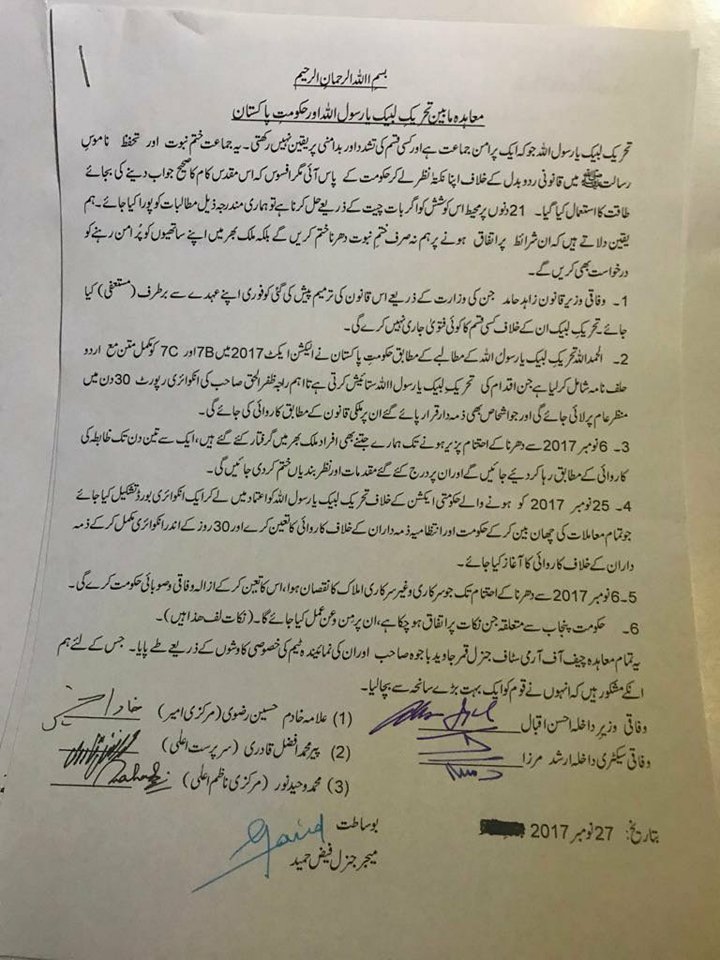 بسم اللہ الرحمان الرحیم
معاہدہ مابین تحریک لبیک یا رسول اللہ اور حکومتِ پاکستان
تحریک لبیک یا رسول اللہ جو کہ ایک پر امن جماعت ہے اور کسی قسم کی تشدد اور بدامنی پر یقین نہیں رکھتی۔ یہ جماعت ختم نبوت اور تحفظ ناموسِ
رسالت ﷺ میں قانونی ردوبدل کے خلاف اپنا نکتۂ نظر لے کر حکومت کے پاس آئی مگر افسوس کہ اس مقدس کام کا صحیح جواب دینے کی بجائے
طاقت کا استعمال کیا گیا۔ 21 دنوں پر محیط اس کوشش کو اگر بات چیت کے ذریعے حل کرنا ہے تو ہماری مندرجہ ذیل مطالبات کو پورا کیا جائے۔ ہم
یقین دلاتے ہیں کہ ان شرائط پر اتفاق ہونے پر ہم نہ صرف ختمِ نبوت دھرنا ختم کریں گے بلکہ ملک بھر میں اپنے ساتھیوں کو پُر امن رہنے کو
درخواست بھی کریں گے۔
1۔ وفاقی وزیر قانون زاہد حامد جن کی وزارت کے ذریعے اس قانون کی ترمیم پیش کی گئی کو فوری اپنے عہدے سے برطرف (مستعفی) کیا
جائے۔ تحریک لبیک ان کے خلاف کسی قسم کا کوئی فتویٰ جاری نہیں کرے گی۔
2۔ الحمد اللہ تحریک لبیک یا رسول اللہ کے مطالبے کے مطابق حکومتِ پاکستان نے الیکشن ایکٹ 2017 میں 7B اور 7C کو مکمل متن مع اردو
حلف نامہ شامل کر لیا ہے جن اقدام کی تحریک لبیک یا رسول اللہ ستائیش کرتی ہے تاہم راجہ ظفر الحق صاحب کی انکوائری رپورٹ 30 دن میں
منظر عام پر لائی جائے گی اور جو اشخاص بھی ذمہ دار قرار پائے گئے ان پر ملکی قانون کے مطابق کاروائی کی جائے گی۔
3۔ 6 نومبر 2017 سے دھرنا کے اختتام پزیر ہونے تک ہمارے جتنے بھی افراد ملک بھر میں گرفتار کئے گئے ہیں، ایک سے تین دن تک ضابطہ کی
کاروائی کے مطابق رہا کر دیئے جائیں گے اور ان پر درج کئے گئے مقدمات اور نظر بندیاں ختم کر دی جائیں گی۔
4۔ 25 نومبر 2017 کو ہونے والے حکومتی ایکشن کے خلاف تحریک لبیک یا رسول اللہ کو اعتماد میں لے کر ایک انکوائری بورڈ تشکیل کیا جائے
جو تمام معاملات کی چھان بین کر کے حکومت اور انتظامیہ ذمہ داران کے خلاف کاروائی کا تعین کرے اور 30 روز کے اندر انکوائری مکمل کر کے ذمہ
داران کے خلاف کاروائی کا آغاز کیا جائے۔
5۔ 6 نومبر 2017 سے دھرنا کے اختتام تک جو سرکاری و غیر سرکاری املاک کا نقصان ہوا، اس کا تعین کر کے ازالہ وفاقی و صوبائی حکومت کرے گی۔
6۔ حکومت پنجاب سے متعلقہ جن نکات پر اتفاق ہو چکا ہے، ان پر من و عن عمل کیا جائے گا۔ (نکات لف ھذا ہیں)۔
یہ تمام معاہدہ چیف آف آرمی سٹاف جنرل قمر جاوید باجوہ صاحب اور ان کی نمائیندہ ٹیم کی خصوصی کاوشوں کے ذریعے طے پایا۔ جس کے لئے ہم
انکے مشکور ہیں کہ انہوں نے قوم کو ایک بہت بڑے سانحہ سے بچا لیا۔
وفاقی وزیر داخلہ احسن اقبال
وفاقی سیکٹری داخلہ ارشد مرزا
(1) علامہ خادم حسین رضوی (مرکزی امیر)
(2) پیر محمد افضل قادری (سرپرست اعلی)
(3) محمد وحید نور (مرکزی ناظم اعلی)
بتاریخ: 27 نومبر 2017
بوساطت
میجر جنرل فیض حمید